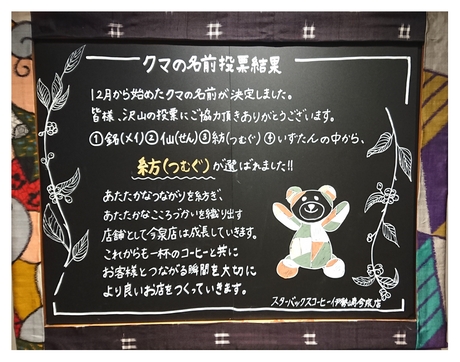 クマの名前投票結果
12月から始めたクマの名前が決定しました。
皆様、沢山の投票にご協力頂きありがとうございます。
①銘(メイ)②仙(せん)③紡(つむぐ)④いずたんの中から、
紡(つむぐ)が選ばれました!!
あたたかなつながりを紡ぎ、
あたたかなこころづかいを織り出す
店舗として今泉店は成長していきます。
これからも一杯のコーヒーと共に
お客様とつながる瞬間を大切に
より良いお店をつくっていきます。
スターバックスコーヒー伊勢崎今泉店